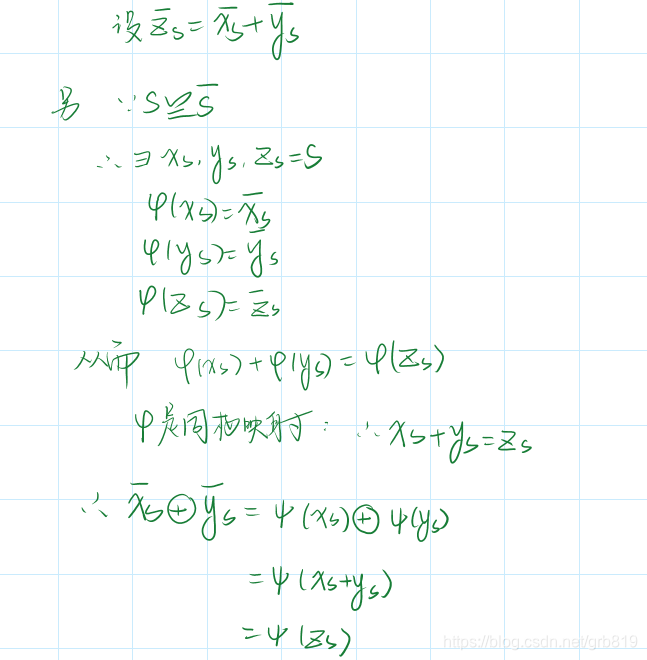 设 z̄ₛ = x̄ₛ + ȳₛ
另 ∵ S ≌ S̄
∴ ∃ xₛ, yₛ, zₛ = S
φ(xₛ) = x̄ₛ
φ(yₛ) = ȳₛ
φ(zₛ) = z̄ₛ
从而 φ(xₛ) + φ(yₛ) = φ(zₛ)
φ是同构映射: ∴ xₛ + yₛ = zₛ
∴ x̄ₛ ⊕ ȳₛ = ψ(xₛ) ⊕ ψ(yₛ)
= ψ(xₛ + yₛ)
= ψ(zₛ)
https://blog.csdn.net/grb819